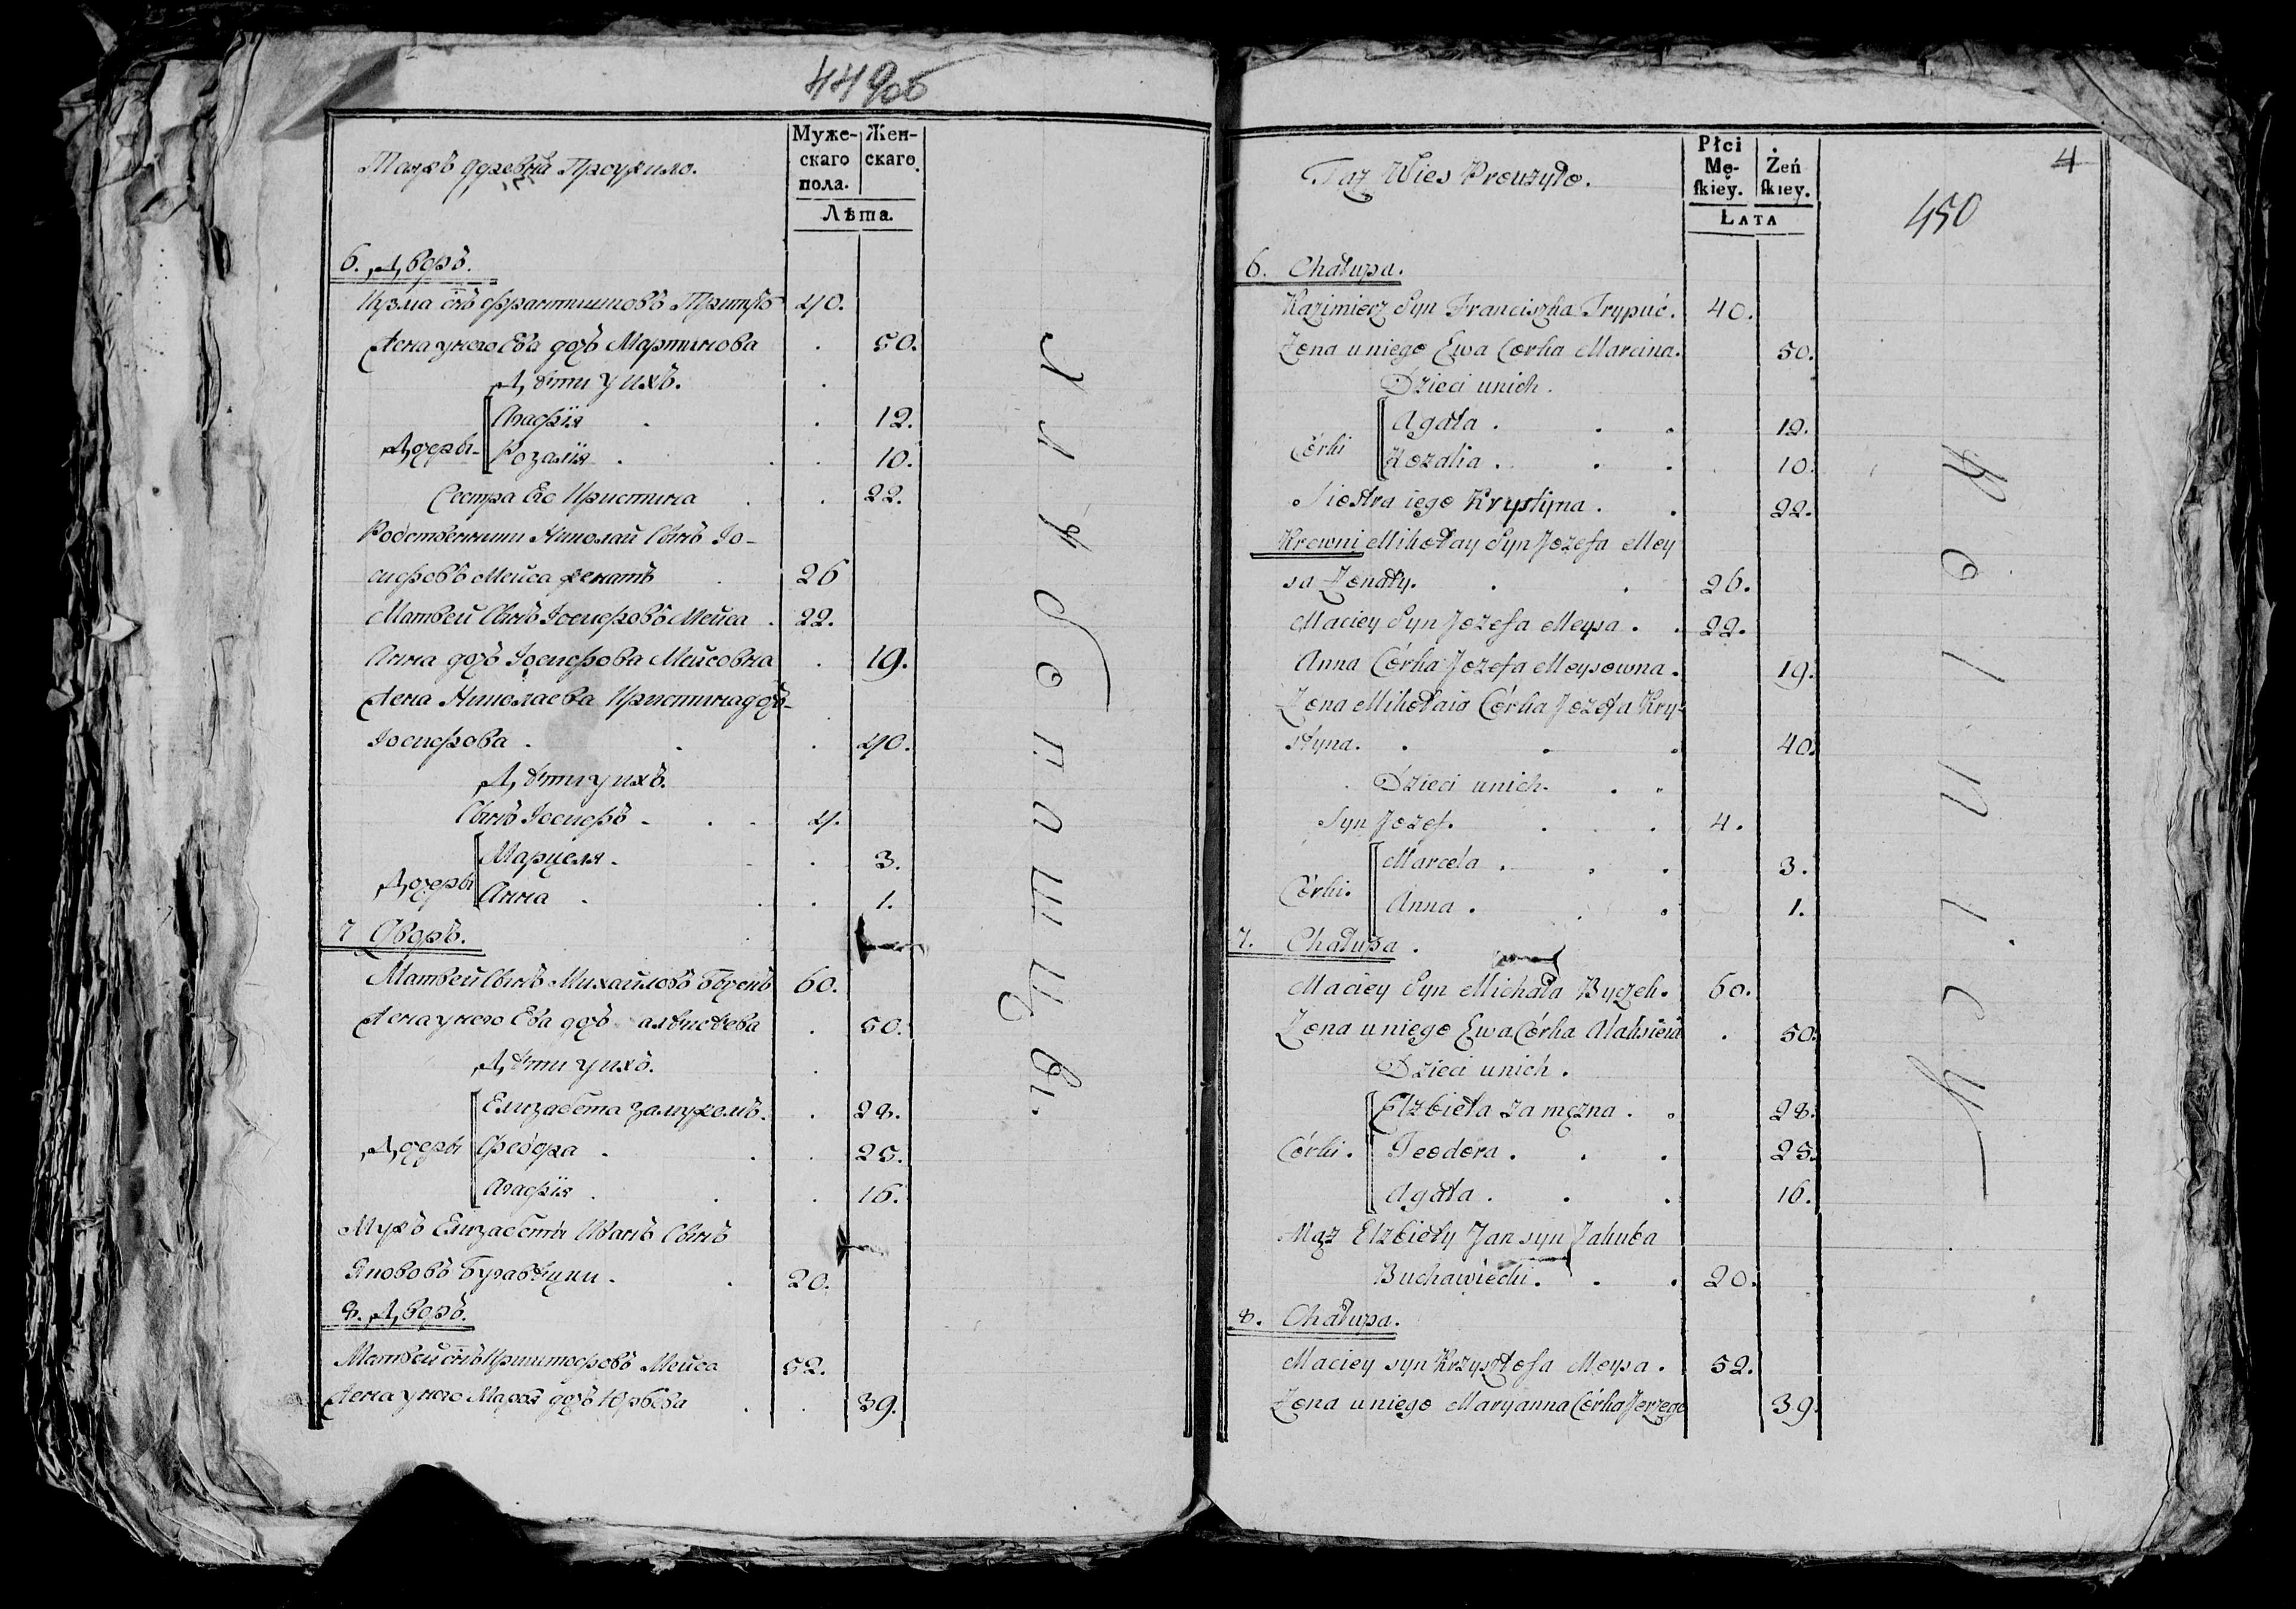 449об
Таяжъ деревня Проужило.
Муже-
скаго
пола.
Жен-
скаго.
Лѣта.
6. Дворъ.
Кузма снъ Франтишковъ Трипуть 40.
Жена унего Ева дочь Мартинова . 50.
Дѣти у ихъ. .
Агафїя . . 12.
Дочеры Розалїя . . . 10.
Сестра Его Кристина . . 22.
Родственники Николай Сынъ Іо-
сифовъ Мейса женатъ . 26
Матвей Сынъ Іосифовъ Мейса . 22.
Анна дочь Іосифова Мейсовна . 19.
Жена Николаева Кристина дочь
Іосифова . . . 40.
Дѣти у ихъ.
Сынъ Іосифъ - . - 4.
Марцеля . - . 3.
Дочеры
Анна . . . 1.
7 Дворъ.
Матвей Сынъ Михайловъ 60.
Жена унего Ева дочь . 50.
Дѣти у ихъ. .
Елизабета замужемъ. . 28.
Дочеры Феодора . . . 25.
Агафїя . . . 16.
Мужъ Елизабеты Иванъ Сынъ
Якововъ . . 20.
8. Дворъ.
Матвей снъ Криштофовъ Мейса 52.
Жена унего Марья дочь Юрьева . . 39.
Лякопицы.
Taż Wies Proużyło.
Płci
Mę-
ſkiey.
Żeń
ſkiey.
Łata
4
450
6. Chałupa.
Kazimierz Syn Franciszka Trypuć. 40.
Zona uniego Ewa Corka Marcina. 50.
Dzieci unich.
Agata . . . 12.
Córki
Rozalia . . . 10.
Siostra iego Krystyna . . 22.
Krewni Mikołay Syn Jozefa Mey
sa Zonaty. . . 26.
Maciey Syn Jozefa Meysa . . 22.
Anna Córka Jozefa Meysowna . 19.
Zona Mikołaia Córka Józefa Kry-
styna. . . . 40.
Dzieci unich. . .
Syn Jozef. . . . 4.
Marcela . . . 3.
Córki.
Anna . . . 1.
7. Chałupa .
Maciey Syn Michała Byczek. 60.
Zona uniego Ewa Córka . 50.
Dzieci unich .
Elzbieta za męzna . . 28.
Córki . Teodora . . . 25.
Agata . . . 16.
Mąz Elzbiety Jan syn Jakuba
Buchawiecki . . . 20.
8. Chałupa.
Maciey syn Krzysztofa Meysa . 52.
Zona uniego Maryanna Córka Jerzego 39.